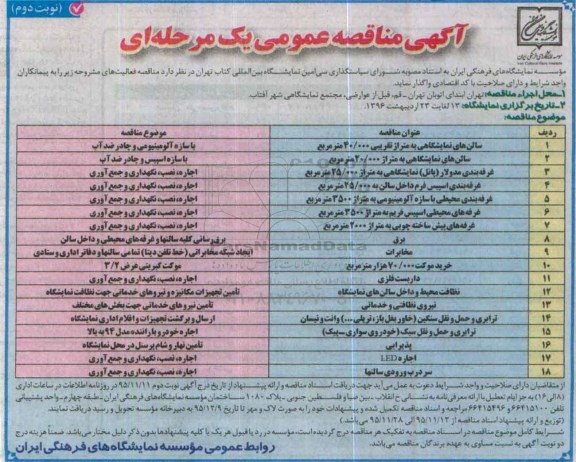 (نوبت دوم)
آگهی مناقصه عمومی یک مرحله‌ای
مؤسسه نمایشگاه‌های فرهنگی ایران به استناد مصوبه شورای سیاستگذاری سی‌امین نمایشگاه بین‌المللی کتاب تهران در نظر دارد مناقصه فعالیت‌های مشروحه زیر را به پیمانکاران
واجد شرایط و دارای صلاحیت با کد اقتصادی واگذار نماید.
۱-محل اجراء مناقصه: تهران ابتدای اتوبان تهران - قم، قبل از عوارضی، مجتمع نمایشگاهی شهر آفتاب.
۲-تاریخ برگزاری نمایشگاه: ۱۳ لغایت ۲۳ اردیبهشت ۱۳۹۶
موضوع مناقصه:
ردیف عنوان مناقصه موضوع مناقصه
۱ سالن‌های نمایشگاهی به متراژ تقریبی ۴۰/۰۰۰ مترمربع با سازه آلومینیومی و چادر ضد آب
۲ سالن‌های نمایشگاهی به متراژ ۲۰/۰۰۰ مترمربع با سازه اسپیس و چادر ضد آب
۳ غرفه‌بندی مدولار (پانل) نمایشگاهی به متراژ ۴۵/۰۰۰ مترمربع اجاره، نصب، نگهداری و جمع آوری
۴ غرفه‌بندی اسپیس فرم داخل سالن به ۲۵/۰۰۰ مترمربع اجاره، نصب، نگهداری و جمع آوری
۵ غرفه‌بندی محیطی با سازه آلومینیومی به متراژ ۳۵۰۰ مترمربع اجاره، نصب، نگهداری و جمع آوری
۶ غرفه‌های محیطی اسپیس فریم به متراژ ۳۵۰۰ مترمربع اجاره، نصب، نگهداری و جمع آوری
۷ غرفه‌های پیش ساخته چوبی به متراژ ۲۰۰۰ مترمربع اجاره، نصب، نگهداری و جمع آوری
۸ برق برق رسانی کلیه سالنها و غرفه‌های محیطی و داخل سالن
۹ مخابرات ایجاد شبکه مخابراتی (خط تلفن دیتا) تمامی سالنها و دفاتر اداری و ستادی
۱۰ خرید موکت ۷۰/۰۰۰ هزار مترمربع موکت کبریتی عرض ۳/۲
۱۱ داربست فلزی اجاره، نصب، نگهداری و جمع آوری
۱۲ نظافت محیط و داخل سالن‌های نمایشگاه تأمین تجهیزات مکانیزه و نیروهای خدماتی جهت نظافت نمایشگاه
۱۳ نیروی نظافتی و خدماتی تأمین نیروهای خدماتی جهت بخش‌های مختلف
۱۴ ترابری و حمل و نقل سنگین (خاور بغل باز، تریلی ...) وانت و نیسان ارسال و برگشت تجهیزات و اقلام اداری نمایشگاه
۱۵ ترابری و حمل و نقل سبک (خودروی سواری - پیک) اجاره خودرو با راننده مدل ۹۴ به بالا
۱۶ پذیرایی تأمین نهار و شام پرسنل در محل نمایشگاه
۱۷ اجاره LED اجاره، نصب، نگهداری و جمع آوری
۱۸ سردرب ورودی سالنها اجاره، نصب، نگهداری و جمع آوری
از متقاضیان دارای صلاحیت و واجد شرایط دعوت به عمل می آید جهت دریافت اسناد مناقصه و ارائه پیشنهاد از تاریخ درج آگهی نوبت دوم ۹۵/۱۱/۱۱ در روزنامه اطلاعات در ساعات اداری
(۸ الی ۱۶) به جز ایام تعطیل با ارائه معرفی‌نامه به نشانی خ انقلاب - بین صبا و فلسطین جنوبی - پلاک ۱۰۸۰ ساختمان مؤسسه نمایشگاه‌های فرهنگی ایران - طبقه چهارم - واحد پشتیبانی
تلفن ۶۶۴۱۵۱۰۰ الی ۶۶۴۱۵۴۹۶ مراجعه و اسناد مناقصه تکمیل شده و پیشنهادات خود را به صورت لاک و مهر تا تاریخ ۹۵/۱۲/۹ به دبیرخانه مؤسسه تحویل و رسید دریافت نمایند.
(توزیع و ارائه پیشنهاد اسناد مناقصه از ۹۵/۱۱/۱۲ الی ۹۵/۱۱/۲۸ می‌باشد).
شرایط کامل موضوع مناقصه در اسناد مناقصه به تفکیک هر مناقصه درج گردیده است، مؤسسه در رد یا قبول هر یک یا کلیه پیشنهادها بدون ذکر دلیل مختار می‌باشد. ضمناً هزینه درج
دو نوبت آگهی به نسبت مساوی به عهده برندگان مناقصه می‌باشد.
روابط عمومی مؤسسه نمایشگاه های فرهنگی ایران